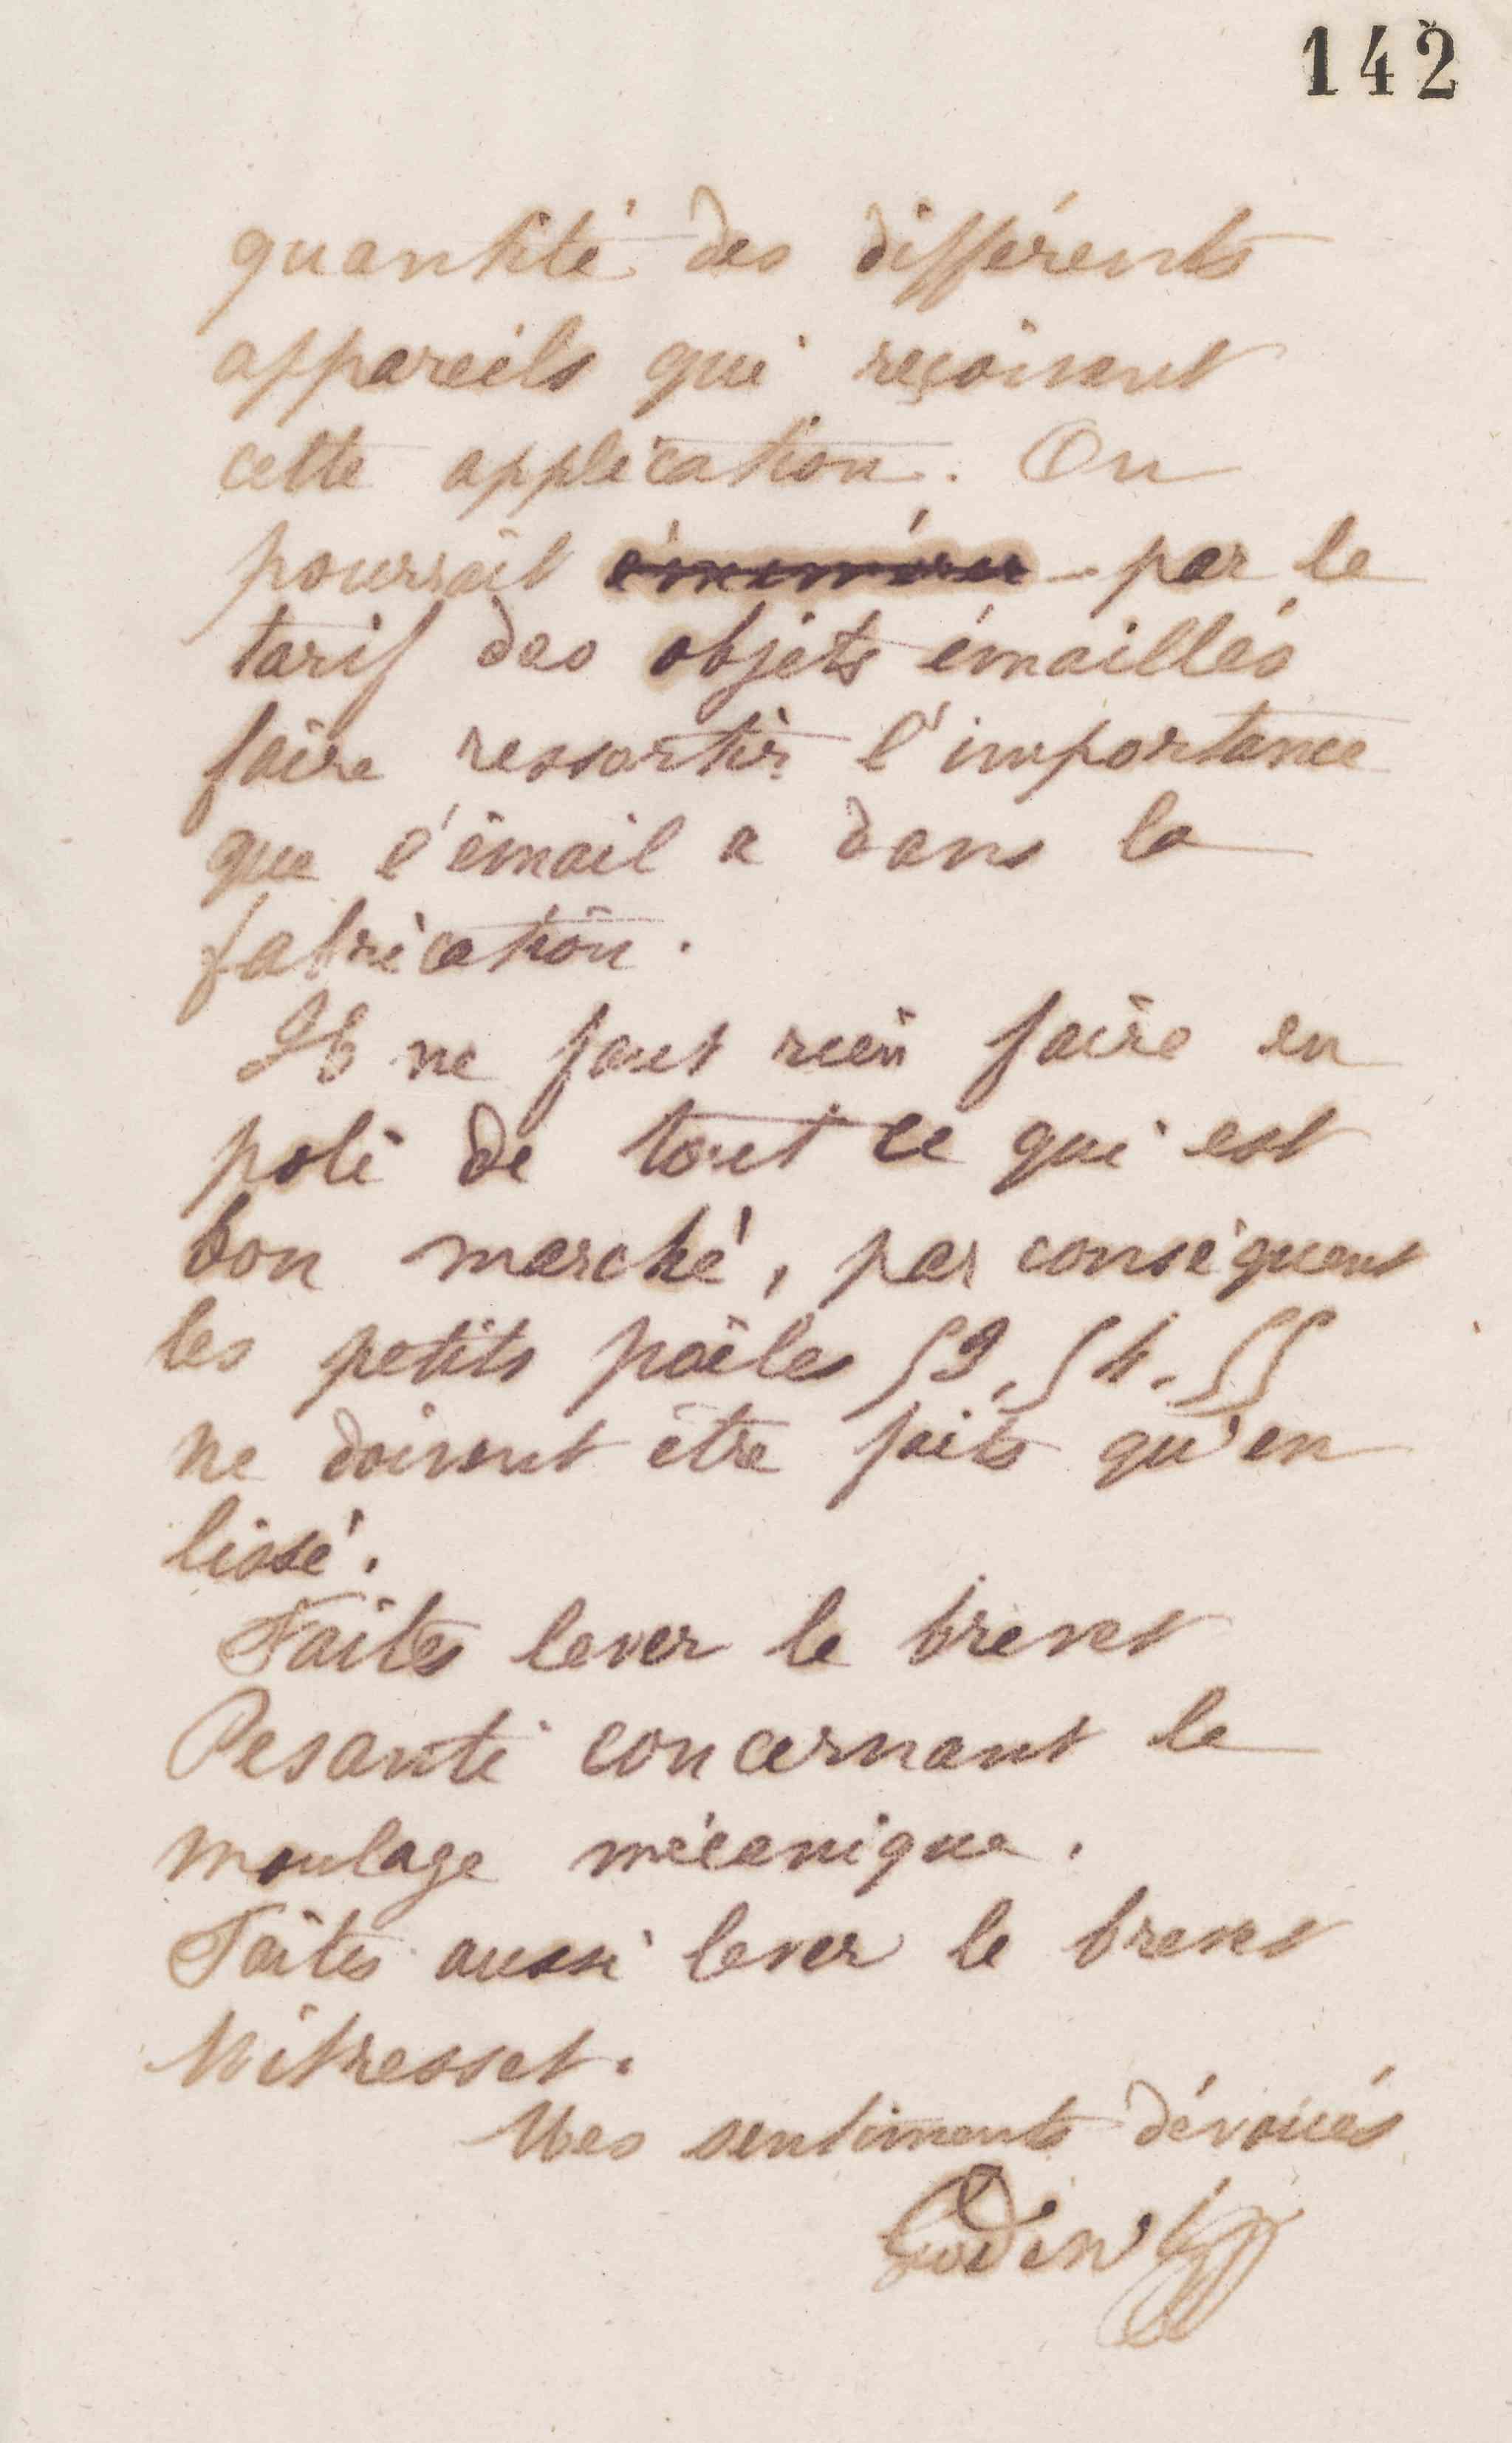 142
quantité des différents
appareils qui reçoivent
cette application. On
pourrait énumérer par le
tarif des objets émaillés
faire ressortir l'importance
que l'émail a dans la
fabrication.
Il ne faut rien faire en
poli de tout ce qui est
bon marché, par conséquent
les petits poêles 53. 54. 55
ne doivent être faits qu'en
lissé.
Faites lever le brevet
Pesanti concernant le
moulage mécanique.
Faites aussi lever le brevet
Mitresset.
Mes sentiments dévoués
Godin